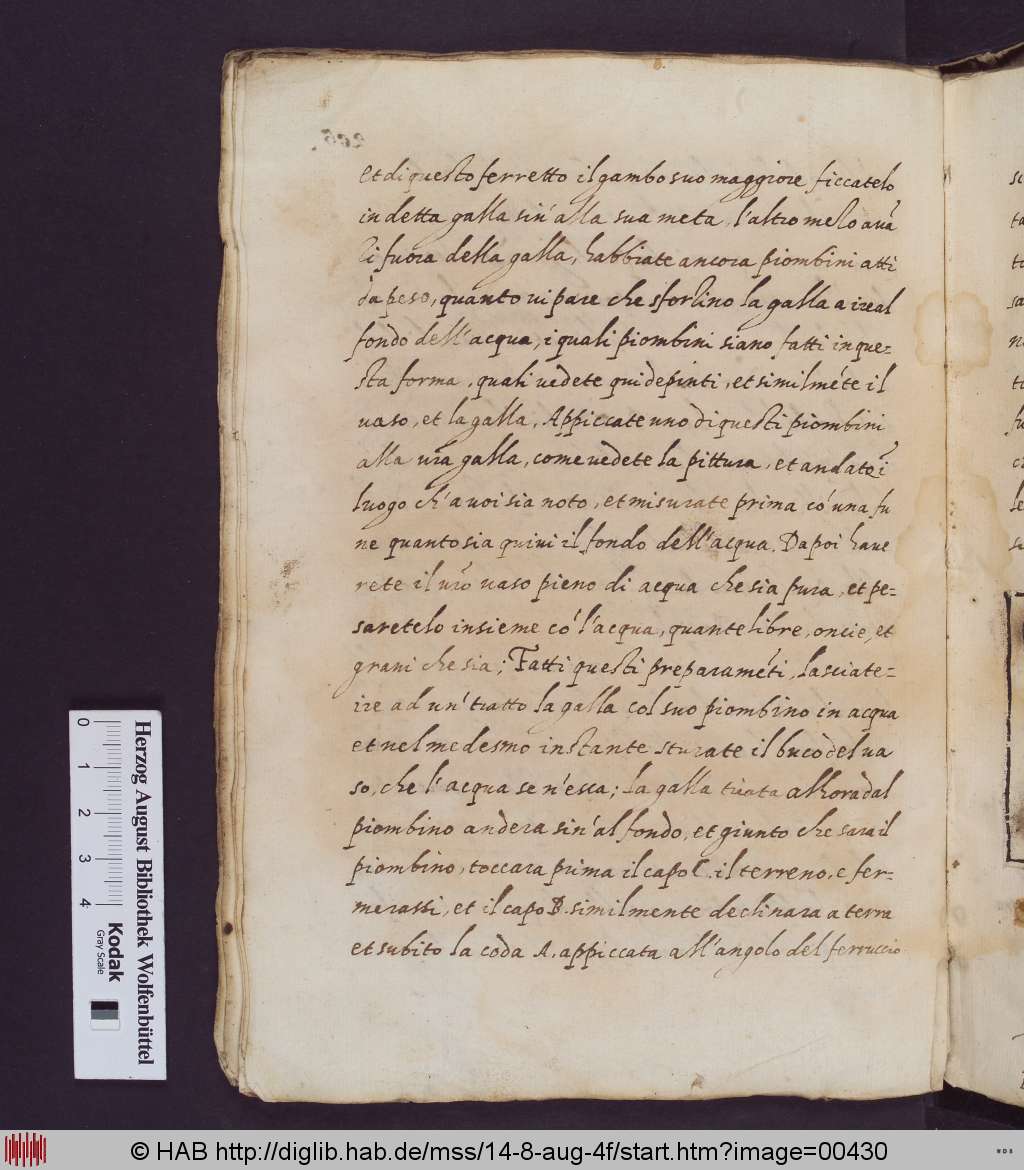 et di questo ferretto il gambo suo maggiore ficcatelo
in detta galla sin' alla sua meta, l'altro mezo auā
zi fuora della galla, habbiate ancora piombini atti
da peso, quanto ui pare che sforzino la galla a ire al
fondo dell'acqua, i quali piombini siano fatti in que=
sta forma, quali uedete qui depinti, et similméte il
uaso, et la galla, Appiccate uno di questi piombini
alla ura galla, come uedete la pittura, et andate ī
luogo ch'a uoi sia noto, et misurate prima có una fu
ne quanto sia quiui il fondo dell'acqua. Dapoi haue
rete il uro uaso pieno di acqua che sia pura, et pe=
saretelo insieme có l'acqua, quante libre, oncie, et
grani che sia; Fatti questi preparaméti, lasciate=
ire ad un' tratto la galla col suo piombino in acqua
et nel medesmo instante sturate il buco del ua
so, che l'acqua se n'esca; la galla tirata alhora dal
piombino andera sin' al fondo, et giunto che sara il
piombino, toccara prima il capo C. il terreno, e fer=
merassi, et il capo B. similmente declinara a terra
et subito la coda A. appiccata all'angolo del ferruccio
Herzog August Bibliothek Wolfenbüttel
0 1 2 3 4
Kodak
Gray Scale
© HAB http://diglib.hab.de/mss/14-8-aug-4f/start.htm?image=00430